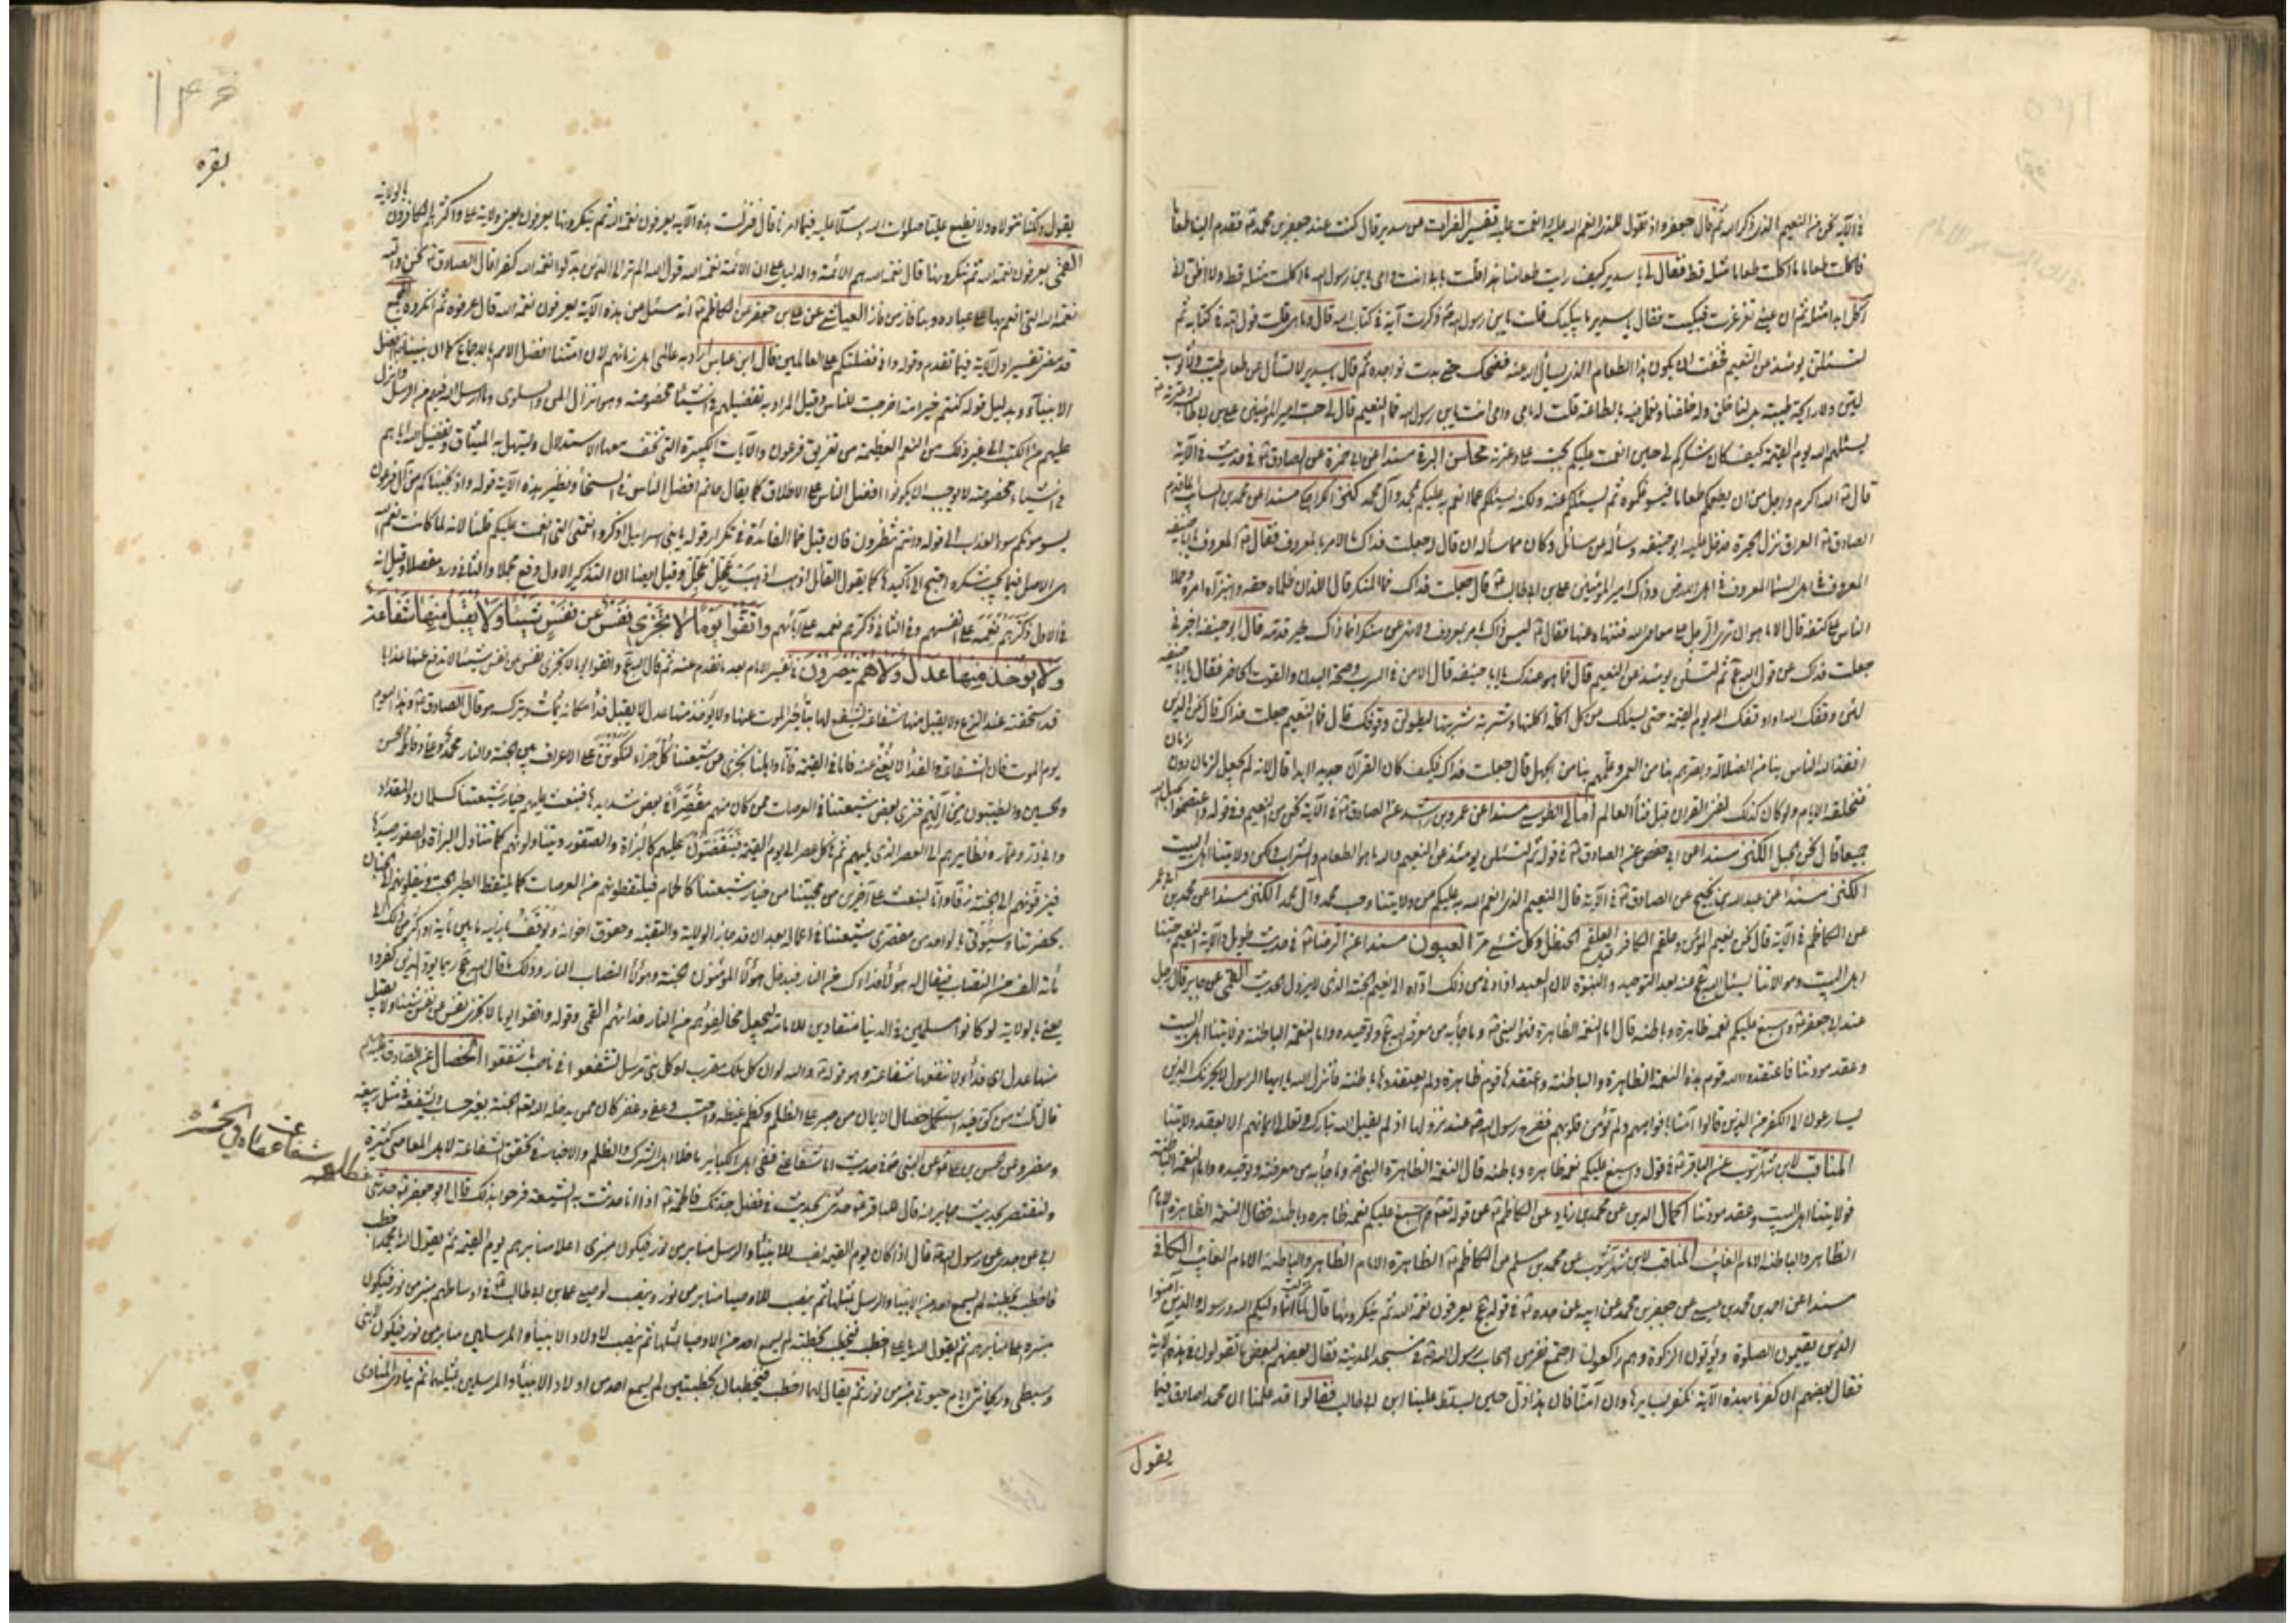 في الآية نحن من النعيم الذي ذكر الله ثم قال جعفر واذ تقول للذي انعم الله عليه وانعمت عليه تفسير الفرات عن سدير قال كنت عند جعفر بن محمد فقدم الينا طعاما
فاكلت طعاما ما اكلت طعاما مثله قط فقال لي يا سدير كيف رايت طعامنا هذا قلت بابي انت وامي يا بن رسول الله ما اكلت مثله قط ولا اظن اني
آكل ابدا مثله ثم ان عيني تغرغرت فبكيت فقال يا سدير ما يبكيك قلت يا بن رسول الله ذكرت آية في كتاب الله قال وما هي قلت قول الله في كتابه ثم
لتسئلن يومئذ عن النعيم فخفت ان يكون هذا الطعام الذي يسألنا الله عنه فضحك حتى بدت نواجده ثم قال يا سدير لا تسأل عن طعام طيب ولا ثوب
لين ولا رائحة طيبة بل لنا خلق وله خلقنا ولنعمل فيه بالطاعة قلت له بابي وامي انت يا بن رسول الله فما النعيم قال لي حب امير المؤمنين علي بن ابي طالب وعترته
يسئلهم الله يوم القيمة كيف كان شكركم لي حين انعمت عليكم بحب علي وعترته مجالس البرقي مسندا عن ابي حمزة عن الصادق في حديث في الآية
قال الله اكرم واجل من ان يطعمكم طعاما فيسوغكموه ثم ليسئلكم عنه ولكنه يسئلكم عما انعم به عليكم بمحمد وآل محمد كنز الكراجكي مسندا عن محمد بن السائب لما قدم
الصادق العراق نزل الحيرة فدخل عليه ابو حنيفه وسأله عن مسائل وكان مما سأله ان قال له جعلت فداك ما الامر بالمعروف فقال المعروف يا ابا حنيفه
المعروف في اهل السماء المعروف في اهل الارض وذاك امير المؤمنين علي بن ابي طالب قال جعلت فداك فما المنكر قال اللذان ظلماه حقه وابتزاه امره وحملا
الناس على كتفه قال الا ما هو ان ترى الرجل على معاصي الله فتنهاه عنها فقال ليس ذاك امر بمعروف ولا نهي عن منكر انما ذاك خير قدمه قال ابو حنيفه اخبرني
جعلت فداك عن قول الله ثم لتسئلن يومئذ عن النعيم قال فما هو عندك يا ابا حنيفه قال الامن في السرب وصحة البدن والقوت الحاضر فقال يا ابا حنيفه
لئن وقفك الله او اوقفك الله يوم القيمة حتى يسئلك من كل اكلة اكلتها وشربة شربتها ليطولن وقوفك قال فما النعيم جعلت فداك قال نحن الذين
انقذ الله الناس بنا من الضلالة وبصرهم بنا من العمى وعلمهم بنا من الجهل قال جعلت فداك فكيف كان القرآن جديدا ابدا قال لانه لم يجعل لزمان دون زمان
فتخلقه الايام ولو كان كذلك لفنى القران قبل فناء العالم امالي الطوسي مسندا عن عمرو بن راشد عن الصادق في الآية نحن من النعيم وفي قوله واعتصموا بحبل الله
جميعا قال نحن الحبل الكنز مسندا عن ابي حفص عن الصادق في قوله ثم لتسئلن يومئذ عن النعيم والله ما هو الطعام والشراب ولكن ولايتنا اهل البيت
الكنز مسندا عن عبد الله بن نجيح عن الصادق في الآية قال النعيم الذي انعم الله به عليكم من ولايتنا وحب محمد وآل محمد الكنز مسندا عن محمد بن ابي عمير
عن الكاظم في الآية قال نحن نعيم المؤمن وعلقم الكافر العلقم الحنظل وكل شئ مر العيون مسندا عن الرضا في حديث طويل في الآية النعيم حبنا
اهل البيت وموالاتنا يسئل الله عنه بعد التوحيد والنبوة لان العبد اذا وفى بذلك اداه الى نعيم الجنة الذي لا يزول الحديث القمي عن جابر قال رجل
عند ابي جعفر واسبغ عليكم نعمه ظاهرة وباطنه قال اما النعمة الظاهرة فهو النبي وما جاء به من معرفة الله وتوحيده واما النعمة الباطنة فولايتنا اهل البيت
وعقد مودتنا فاعتقد والله قوم هذه النعمة الظاهرة والباطنة واعتقدها قوم ظاهرة ولم يعتقدوها باطنة فانزل الله يا ايها الرسول لا يحزنك الذين
يسارعون في الكفر من الذين قالوا آمنا بافواههم ولم تؤمن قلوبهم ففرح رسول الله عند نزولها اذ لم يقبل الله تبارك وتعالى ايمانهم الا بعقد ولايتنا
المناقب لابن شهرآشوب عن الباقر في قوله واسبغ عليكم نعمه ظاهره وباطنه قال النعمة الظاهرة النبي وما جاء به من معرفته وتوحيده واما النعمة الباطنة
فولايتنا اهل البيت وعقد مودتنا اكمال الدين عن محمد بن زياد عن الكاظم عن قوله تعالى واسبغ عليكم نعمه ظاهره وباطنه فقال النعمة الظاهرة الامام
الظاهر والباطنه الامام الغايب المناقب لابن شهرآشوب عن محمد بن مسلم عن الكاظم الظاهرة الامام الظاهر والباطنه الامام الغايب الكافي
مسندا عن احمد بن محمد بن عيسى عن جعفر بن محمد عن ابيه عن جده في قوله يعرفون نعمة الله ثم ينكرونها قال لما نزلت انما وليكم الله ورسوله والذين آمنوا
الذين يقيمون الصلوة ويؤتون الزكوة وهم راكعون اجتمع نفر من اصحاب رسول الله في مسجد المدينة فقال بعضهم لبعض ما تقولون في هذه الآية
فقال بعضهم ان كفرنا بهذه الآية نكفر بسايرها وان آمنا فان هذا ذل حين يسلط علينا ابن ابي طالب فقالوا قد علمنا ان محمدا صادق فيما
يقول
بقره
يقول ولكنا نتولاه ولا نطيع عليا صلوات الله وسلامه عليه فيما امرنا قال فنزلت هذه الآية يعرفون نعمة الله ثم ينكرونها يعرفون يعني ولاية علي واكثرهم الكافرون بالولاية
القمي يعرفون نعمة الله ثم ينكرونها قال نعمة الله هم الائمة والدليل على ان الائمة نعمة الله قول الله الم تر الى الذين بدلوا نعمة الله كفرا قال الصادق نحن والله
نعمة الله التي انعم بها على عباده وبنا فاز من فاز العياشي عن علي بن جعفر عن الكاظم انه سئل عن هذه الآية يعرفون نعمة الله قال عرفوه ثم انكروه
قد مضى تفسير اول الآية فيما تقدم وقوله واني فضلتكم على العالمين قال ابن عباس اراد به عالمي اهل زمانهم لان امتنا افضل الامم بالاجماع كما ان نبينا افضل
الانبياء وبدليل قوله كنتم خير امة اخرجت للناس وقيل المراد به تفضيلهم في اشياء مخصوصة وهو انزال المن والسلوى وما ارسل الله فيهم من الرسل وانزل
عليهم من الكتب الى غير ذلك من النعم العظيمة من تغريق فرعون والآيات الكثيرة التي تخفف معها الاستدلال ويسهل بها الميثاق وتفضيل الله اياهم
في اشياء مخصوصة لا يوجب ان يكونوا افضل الناس على الاطلاق كما يقال حاتم افضل الناس في السخاء ونظير هذه الآية قوله واذ نجيناكم من آل فرعون
يسومونكم سوء العذاب الى قوله وانتم تنظرون فان قيل فما الفائدة في تكرار قوله يا بني اسرائيل اذكروا نعمتي التي انعمت عليكم قلنا لانه لما كانت نعم الله
هي الاصل فيما يجب شكره احتيج الى تأكيدها كما يقول القائل اذهب اذهب عجل عجل وقيل ايضا ان التذكير الاول وقع مجملا والثاني ورد مفصلا وقيل انه
في الاول ذكرهم نعمه على انفسهم وفي الثاني ذكرهم نعمه على آبائهم واتقوا يوما لا تجزي نفس عن نفس شيئا ولا يقبل منها شفاعة
ولا يؤخذ منها عدل ولا هم ينصرون في تفسير الامام بعد ما تقدم عنه ثم قال الله واتقوا يوما لا تجزي نفس عن نفس شيئا لا تدفع عنها عذابا
قد استحقته عند النزع ولا يقبل منها شفاعة يشفع لها بتأخير الموت عنها ولا يؤخذ منها عدل لا يقبل فداء مكانه يمات ويترك هو قال الصادق وهذا اليوم
يوم الموت فان الشفاعة والفداء لا يغني عنه فاما في القيمة فانا واهلنا نجزي عن شيعتنا كل جزاء لنكونن على الاعراف بين الجنة والنار محمد وعلي وفاطمة والحسن
والحسين والطيبون من آلهم فنرى بعض شيعتنا في العرصات ممن كان منهم مقصرا في بعض شدايدها فنبعث عليهم خيار شيعتنا كسلمان والمقداد
وابي ذر وعمار ونظايرهم في العصر الذي يليهم ثم في كل عصر الى يوم القيمة فينقضون عليهم كالبزاة والصقور ويتناولونهم كما تتناول البزاة والصقور صيدها
فيزفونهم الى الجنة زفا وانا لنبعث على آخرين من محبينا من خيار شيعتنا كالحمام فيلتقطونهم من العرصات كما يلتقط الطير الحب وينقلونهم الى الجنان
بحضرتنا وسيؤتى بالواحد من مقصري شيعتنا في اعماله بعد ان قد حاز الولاية والتقية وحقوق اخوانه ويوقف بازائه ما بين مأية او اكثر من ذلك الى
مائة الف من النصاب فيقال له هؤلاء فداؤك من النار فيدخل هؤلاء المؤمنون الجنة وهؤلاء النصاب النار وذلك ما قال الله ربما يود الذين كفروا
يعني بالولاية لو كانوا مسلمين في الدنيا منقادين للامامة ليجعل مخالفوهم من النار فداءهم القمي وقوله واتقوا يوما لا تجزي نفس عن نفس شيئا ولا يقبل
منها عدل اي فداء ولا تنفعها شفاعة وهو قوله والله لو ان كل ملك مقرب او كل نبي مرسل شفعوا في ناصب ما شفعوا الخصال عن الصادق عليه السلام
قال ثلث من كن فيه استكمل خصال الايمان من صبر على الظلم وكظم غيظه واحتسب وعفى وغفر كان ممن يدخله الله الجنة بغير حساب ويشفعه في مثل ربيعة
ومضر وعن الحسن بن علي عن النبي في حديث اما شفاعتي ففي اهل الكبائر ما خلا اهل الشرك والظلم والاخبار في تحقق الشفاعة لاهل المعاصي كثيرة
ولنقتصر بحديث جابر انه قال للباقر حدثني بحديث في فضل جدتك فاطمة اذا انا حدثت به الشيعة فرحوا بذلك قال ابو جعفر حدثني
ابي عن جدي عن رسول الله قال اذا كان يوم القيمة نصب للانبياء والرسل منابر من نور فيكون منبري اعلا منابرهم يوم القيمة ثم يقول الله يا محمد اخطب
فاخطب بخطبة لم يسمع احد من الانبياء والرسل بمثلها ثم ينصب للاوصياء منابر من نور وينصب لوصيي علي بن ابي طالب في اوساطهم منبر من نور فيكون
منبره اعلا منابرهم ثم يقول الله يا علي اخطب فيخطب بخطبة لم يسمع احد من الاوصياء بمثلها ثم ينصب لاولاد الانبياء والمرسلين منابر من نور فيكون لابني
وسبطي وريحانتي ايام حيوتي منبر من نور ثم يقال لهما اخطبا فيخطبان بخطبتين لم يسمع احد من اولاد الانبياء والمرسلين بمثلهما ثم ينادي المنادي